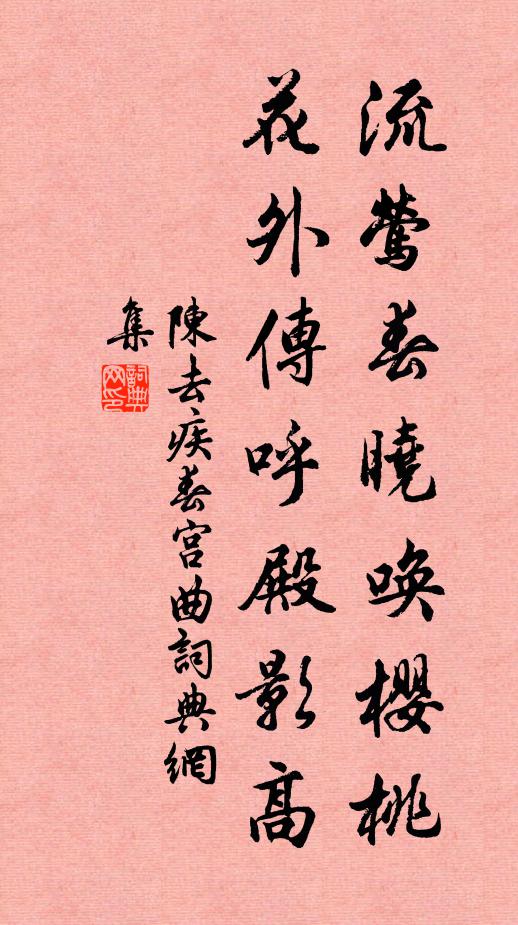 流鶯春曉喚櫻桃
花外傳呼殿影高
陳去疾春宮曲詞典網
集
詞典
网印